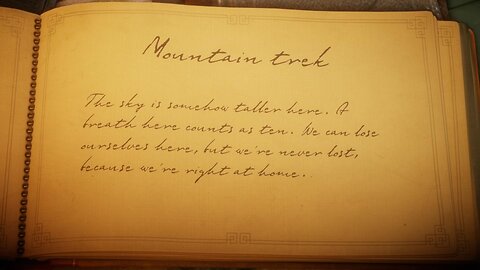 Mountain trek
The sky is somehow taller here. A
breath here counts as ten. We can lose
ourselves here, but we're never lost,
because we're right at home.